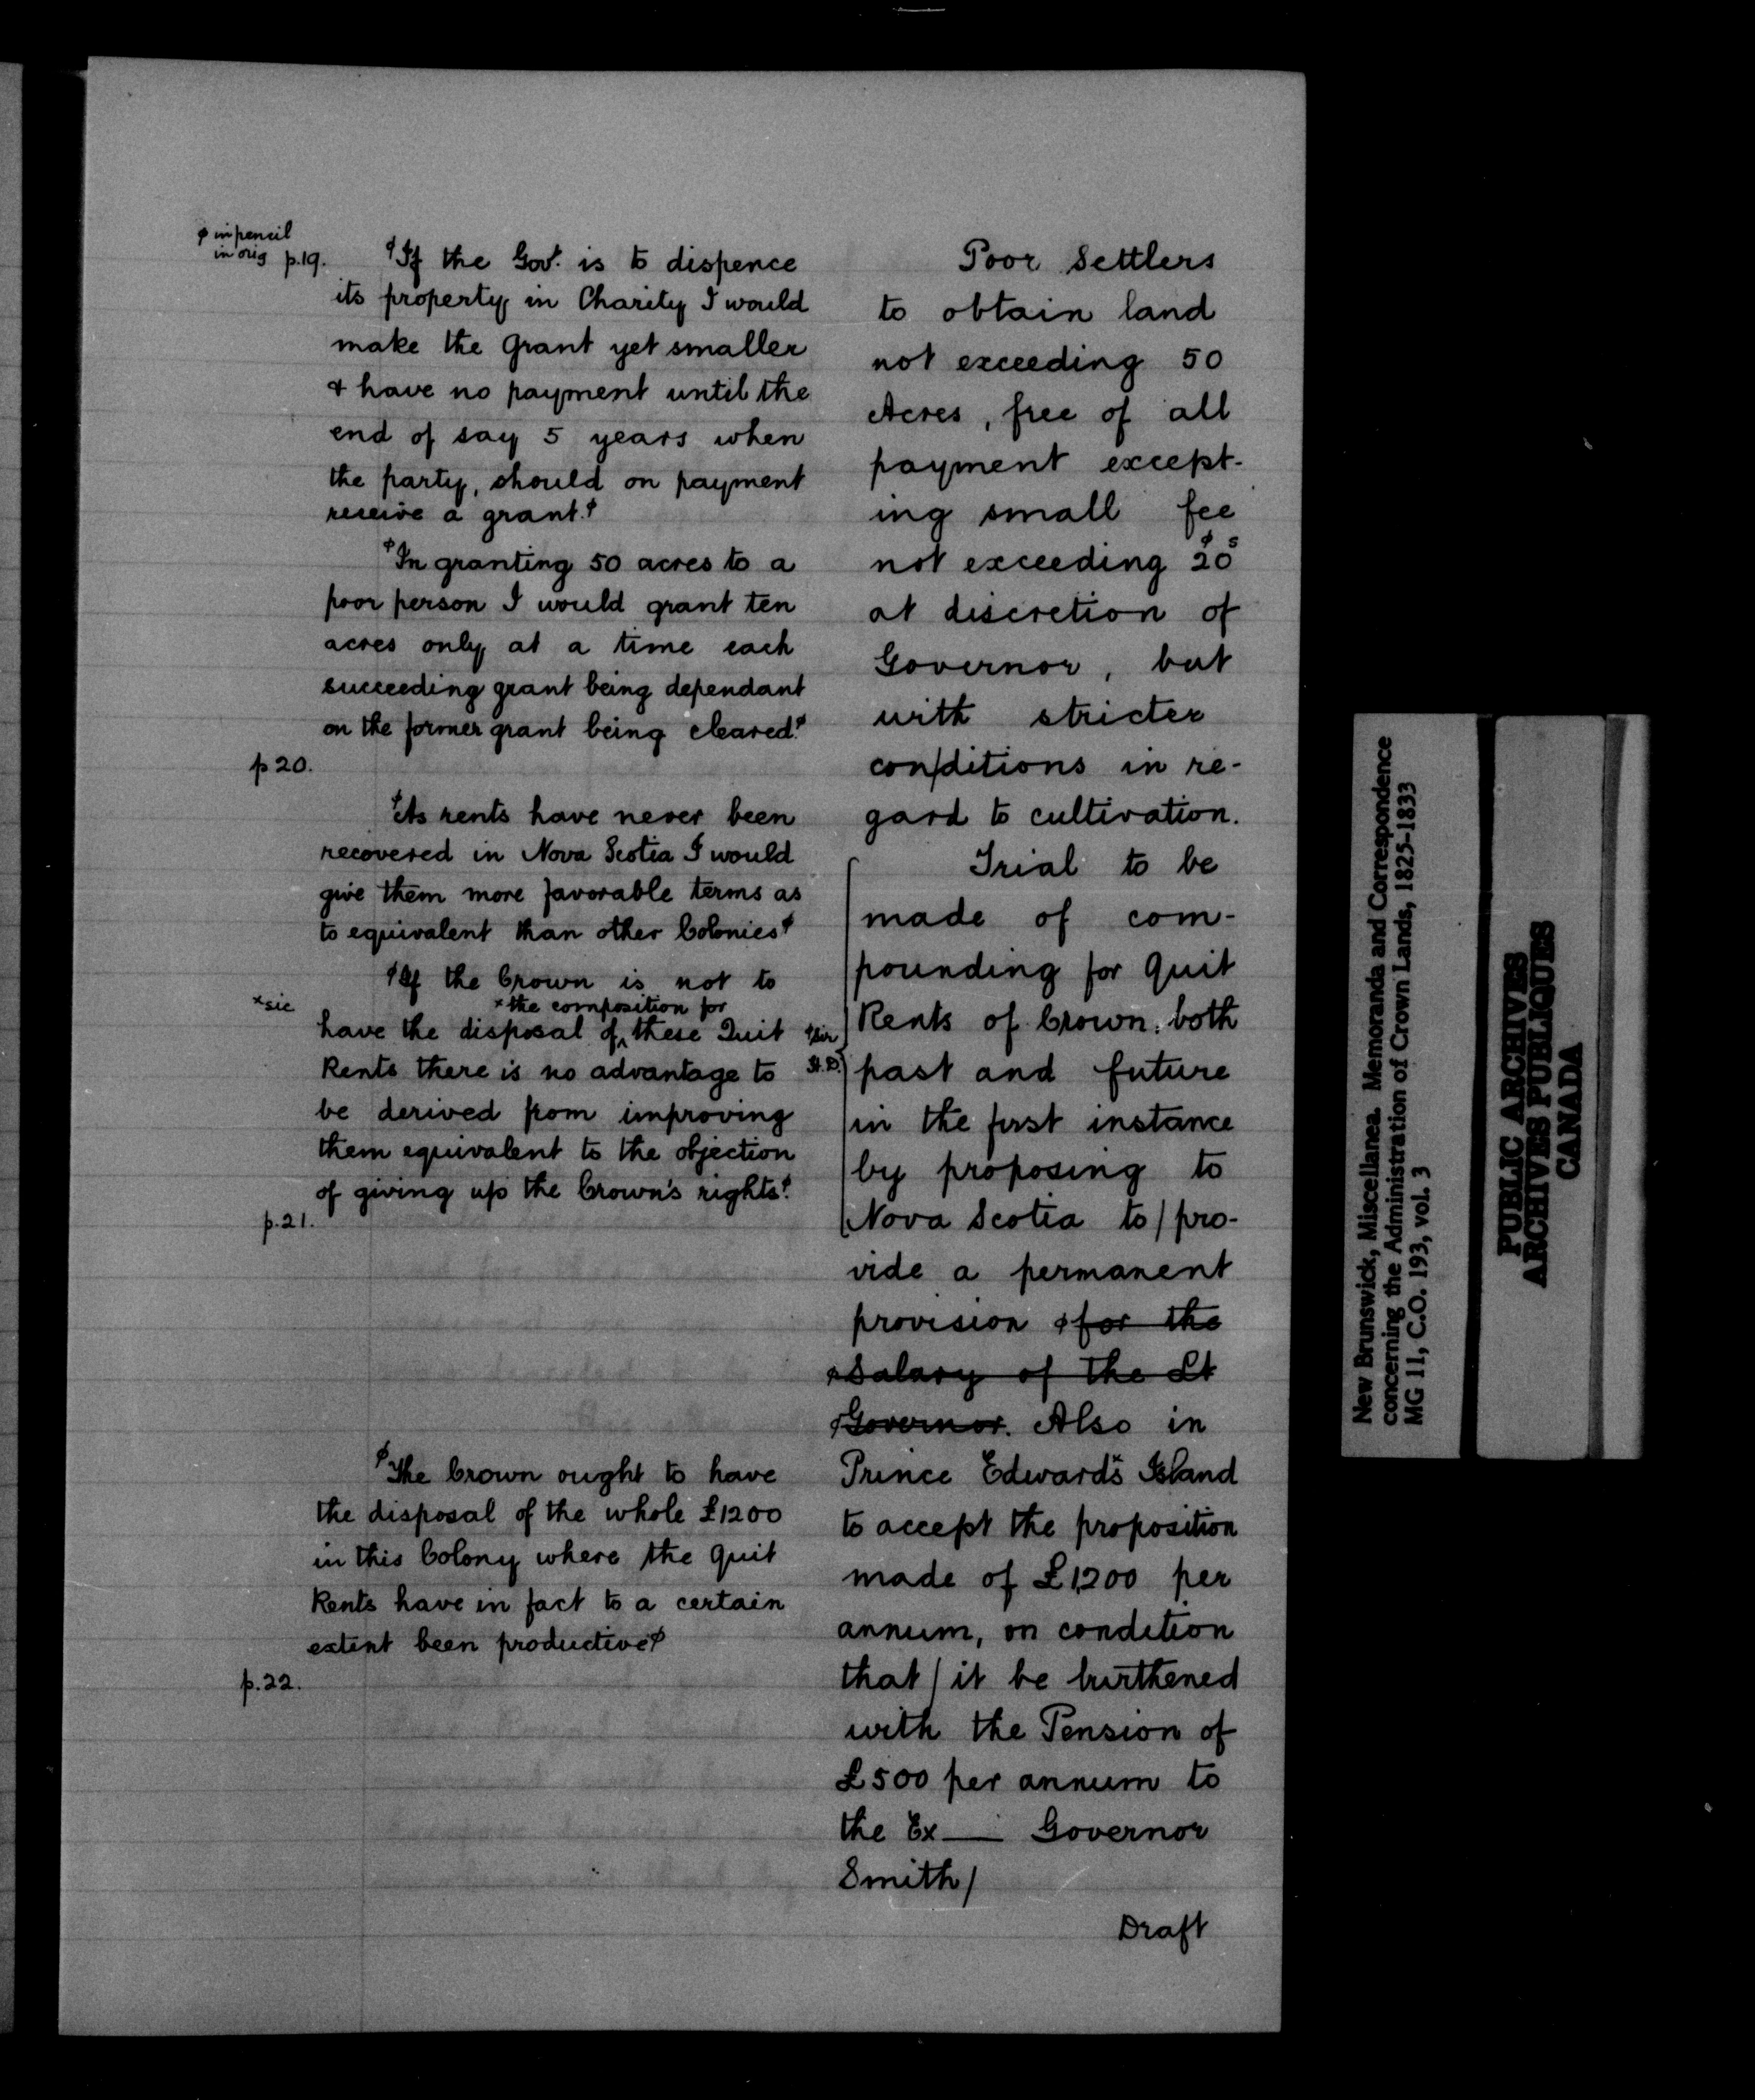 ɸ in pencil
in orig p.19.
ɸIf the Govt. is to dispence
its property in Charity I would
make the grant yet smaller
& have no payment until the
end of say 5 years when
the party, should on payment
receive a grant.ɸ
ɸIn granting 50 acres to a
poor person I would grant ten
acres only at a time each
succeeding grant being dependant
on the former grant being cleared.ɸ
p 20.
ɸAs rents have never been
recovered in Nova Scotia I would
give them more favorable terms as
to equivalent than other Coloniesɸ
ɸIf the Crown is not to
xsic
x the composition for
have the disposal of ‸ these Quit
Rents there is no advantage to
be derived from improving
them equivalent to the objection
of giving up the Crown's rights.ɸ
p.21.
ɸThe Crown ought to have
the disposal of the whole £1200
in this Colony where the Quit
Rents have in fact to a certain
extent been productiveɸ
p.22.
Poor Settlers
to obtain land
not exceeding 50
Acres, free of all
payment except-
ing small fee
not exceeding ɸ20s
at discretion of
Governor, but
with stricter
con/ditions in re-
gard to cultivation.
Trial to be
made of com-
pounding for Quit
Rents of Crown, both
past and future
in the first instance
by proposing to
Nova Scotia to / pro-
vide a permanent
provision ɸfor the
ɸSalary of the Lt
ɸGovernor. Also in
Prince Edward's Island
to accept the proposition
made of £1,200 per
annum, on condition
that / it be burthened
with the Pension of
£500 per annum to
the Ex — Governor
Smith /
Draft
New Brunswick, Miscellanea. Memoranda and Correspondence
concerning the Administration of Crown Lands, 1825-1833
MG 11, C.O. 193, vol. 3
PUBLIC ARCHIVES
ARCHIVES PUBLIQUES
CANADA